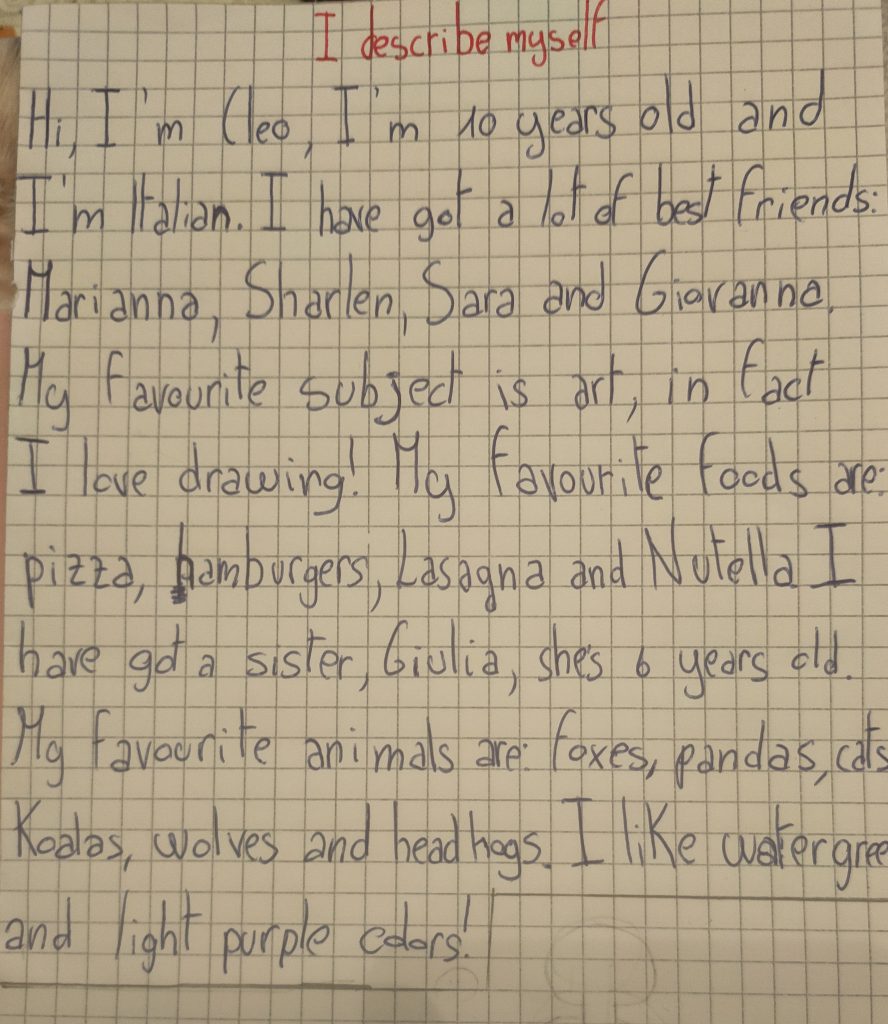 I describe myself
Hi, I'm Cleo, I'm 10 years old and
I'm Italian. I have got a lot of best friends:
Marianna, Sharlen, Sara and Giovanna.
My favourite subject is art, in fact
I love drawing! My favourite foods are:
pizza, hamburgers, Lasagna and Nutella I
have got a sister, Giulia, she's 6 years old.
My favourite animals are: foxes, pandas, cats
Koalas, wolves and headhogs. I like watergree
and light purple colors!